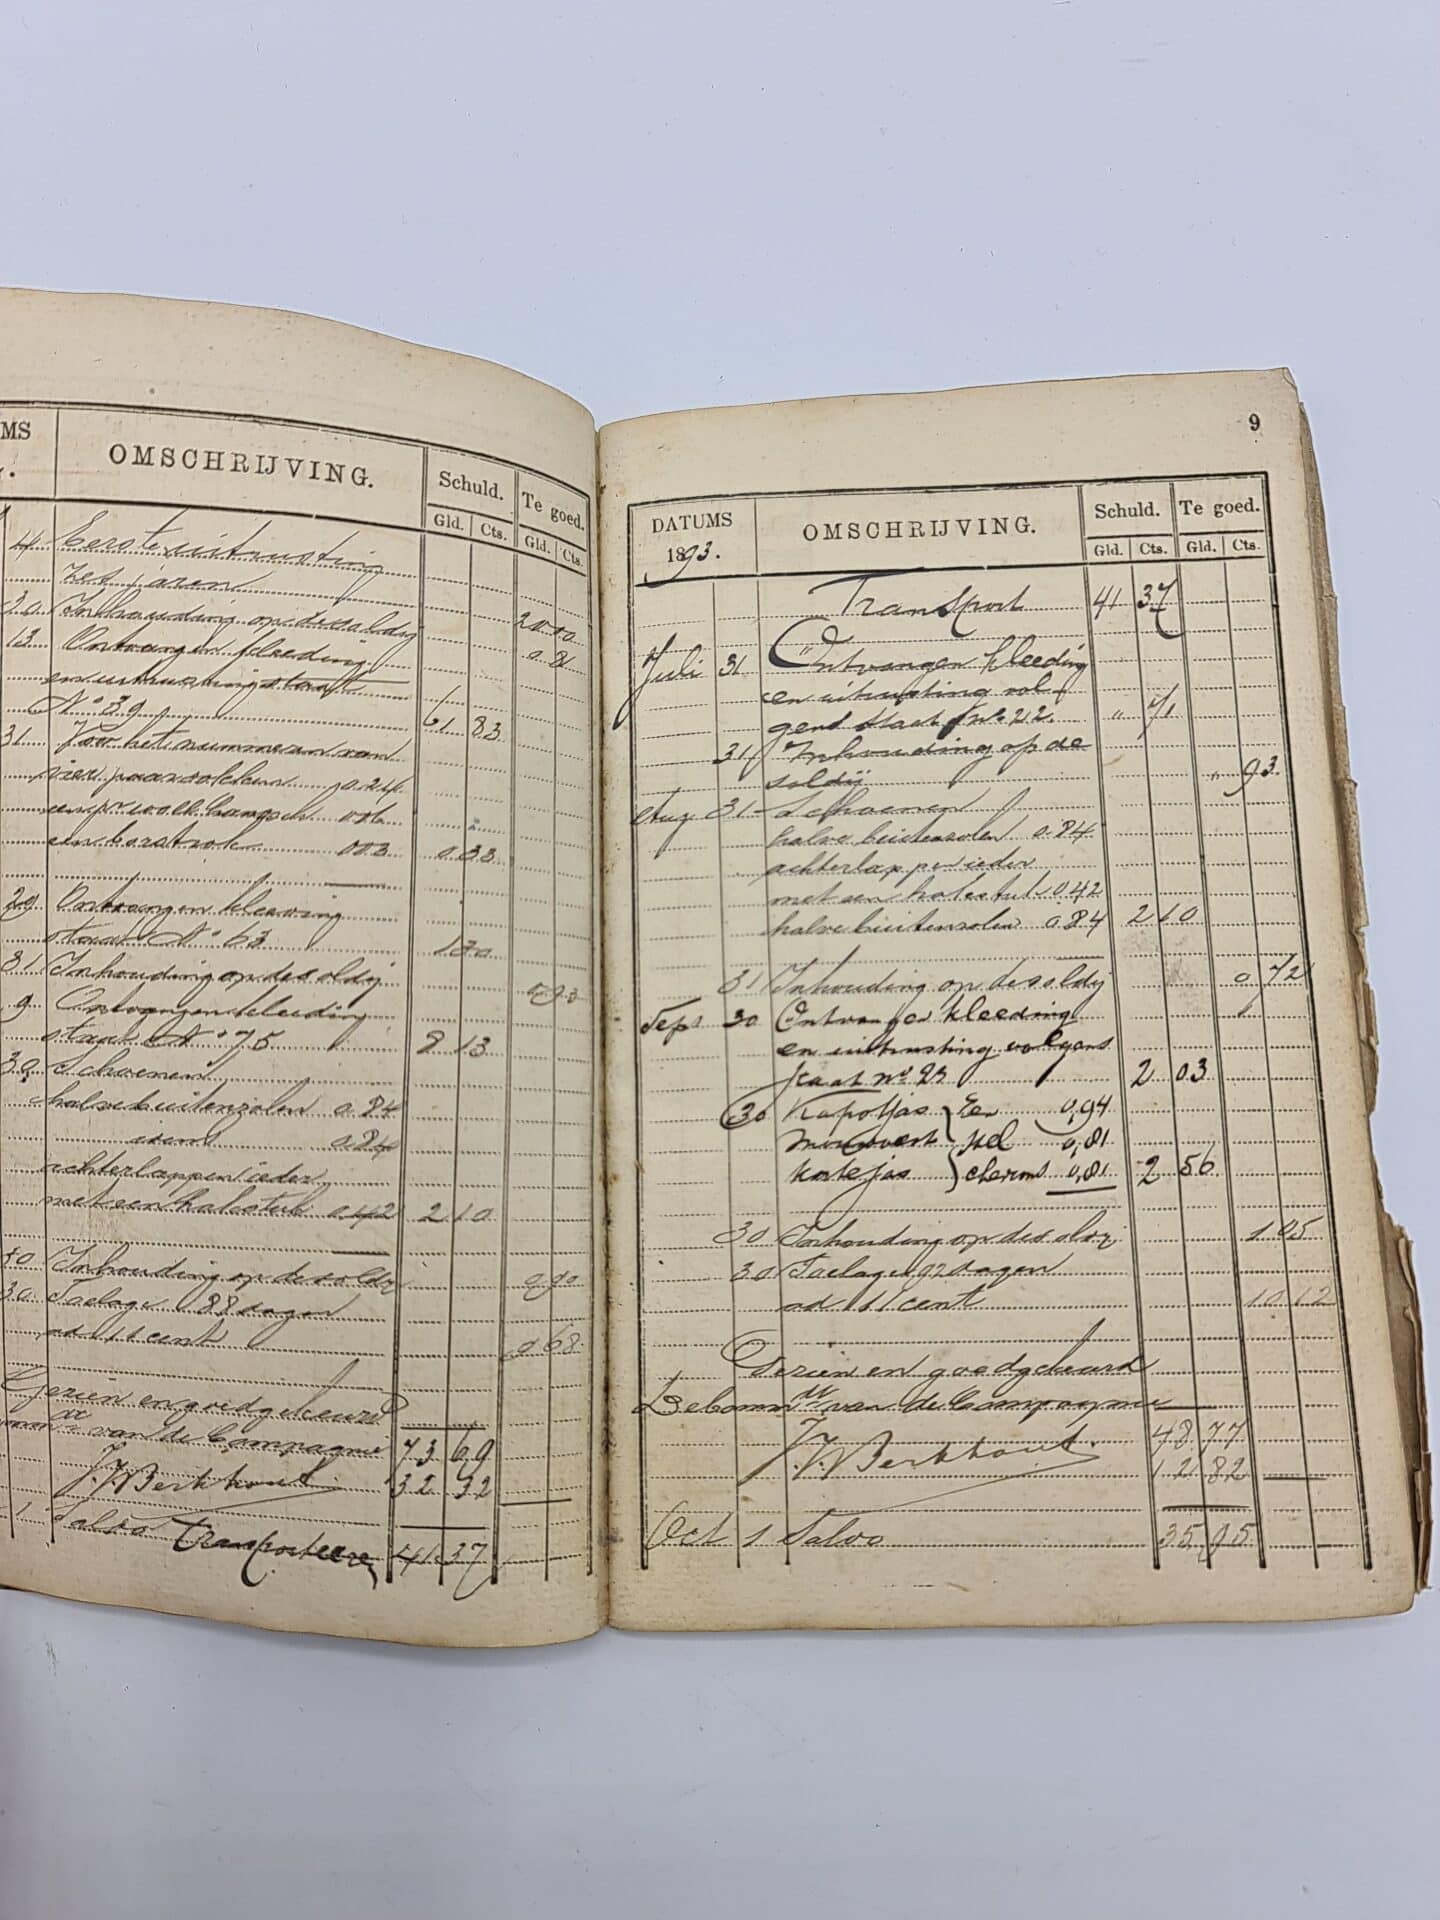 MS
OMSCHRIJVING.
Schuld.
Te goed.
Gld.
Cts.
Gld.
Cts.
4 Eerste uitrusting
zes jaren
30 Inhouding op de soldij 20 00
13 Ontvangen kleeding 0 81
en uitrustingstaat
No 39 61 83
31 Voor het nummeren van
vier paar sokken 0.24
een borstrok 003 0 33
29 Ontvangen kleeding
staat No 63 1 30
31 Inhouding op de soldij 0 93
9 Ontvangen kleeding
staat No 75 8 13
30 Schoenen
halve buitenzolen 0.84
idem 0.84
achterlappen ieder
met een halestuk 0.42 2 10
Inhouding op de soldij 0 90
30 Toelage 88 dagen
ad 11 cent 9 68
Gezien en goedgekeurd
van de Compagnie 73 69
J.J. Berkhout 32 32
1 Saldo Transporteere 41 37
9
DATUMS
1893.
OMSCHRIJVING.
Schuld.
Te goed.
Gld.
Cts.
Gld.
Cts.
Transport 41 37
Juli 31 Ontvangen kleeding
en uitrusting vol-
gend staat no. 22. " 71
31 Inhouding op de
soldij " 93
Aug 31 Schoenen
halve buitenzolen 0.84
achterlappen ieder
met een halestuk 0.42
halve buitenzolen 0.84 2 10
31 Inhouding op de soldij 0 72
Sept 30 Ontvangen kleeding
en uitrusting volgens
staat no 2 03
30 Kapotjas 0,94
0,81
Korte jas 0,81 2 56
30 Inhouding op de soldij 1 05
30 Toelage 92 dagen
ad 11 cent 10 12
Gezien en goedgekeurd
De Commdt van de Compagnie
J.J. Berkhout 48 77
12 82
Oct 1 Saldo 35 95